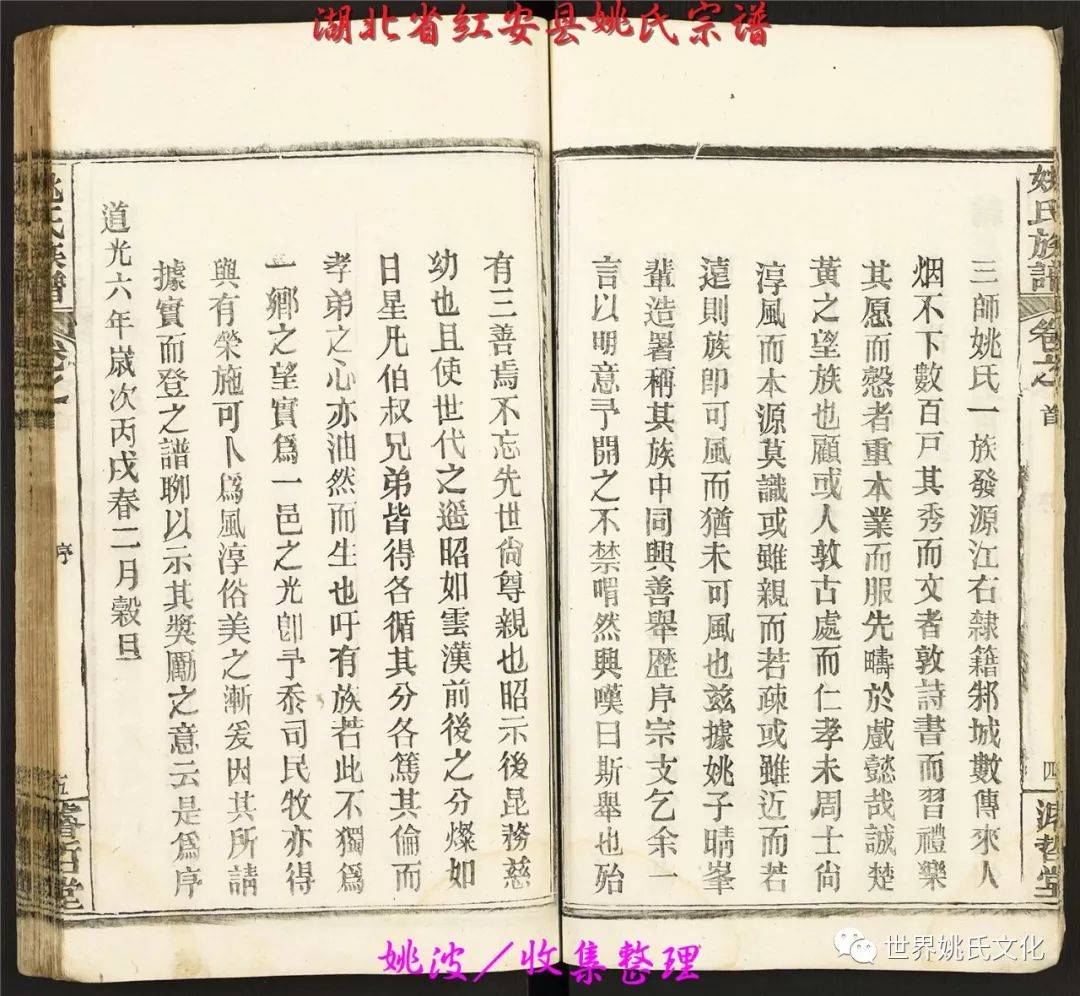 湖北省红安县姚氏宗谱
姚氏族譜
卷之首
四
濬哲堂
三師姚氏一族發源江右隸籍邾城數傳來人
烟不下數百戸其秀而文者敦詩書而習禮樂
其愿而愨者重本業而服先疇於戲懿哉誠楚
黃之望族也顧或人敦古處而仁孝未周士尙
淳風而本源莫識或雖親而若疎或雖近而若
遠則族卽可風而猶未可風也兹據姚子晴峯
輩造署稱其族中同興善舉歴序宗支乞余一
言以明意予開之不禁喟然興嘆曰斯舉也殆
有三善焉不忘先世尙尊親也昭示後昆務慈
幼也且使世代之遥昭如雲漢前後之分燦如
日星凡伯叔兄弟皆得各循其分各篤其倫而
孝弟之心亦油然而生也吁有族若此不獨爲
一鄉之望實爲一邑之光卽予忝司民牧亦得
與有榮施可卜爲風淳俗美之漸爰因其所請
據實而登之譜聊以示其獎勵之意云是爲序
道光六年嵗次丙戌春二月穀旦
姚氏族譜
卷之
序
五
濬哲堂
姚波／收集整理
世界姚氏文化